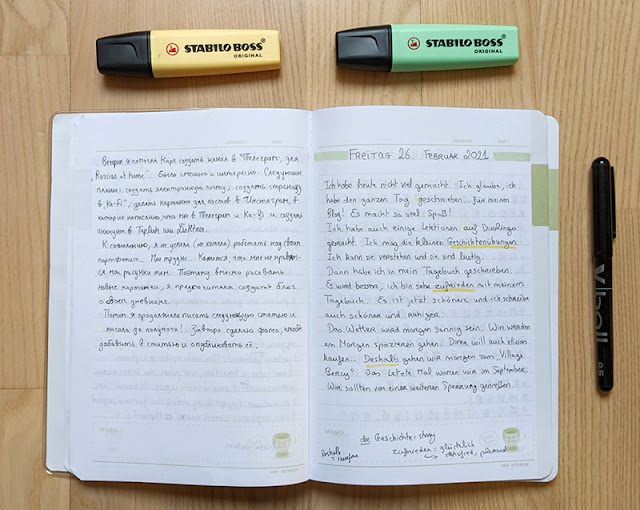 STABILO BOSS
ORIGINAL
STABILO BOSS
ORIGINAL
Вечером я помогла Кире создать канал в "Телеграм", для
"Russian at home". Было смешно и интересно. Следующие
планы: создать электронную почту, создать страницу
в "Ko-Fi", сделать картинки для постов в Инстаграм, в
которых написано, что мы в Телеграм и Ko-Fi и создать
аккаунт в Tiplink или Linktree.
К сожалению, я не успела (не хотела) работать над своим
портфолио... Мне трудно. Кажется, что мне не нравят-
ся мои рисунки там. Поэтому вместо рисовать
новые картинки, я предпочитала создать блог
о моём дневнике.
Потом я продолжала писать следующую статью и
писала до полуночи! Завтра сделаю фото, чтобы
добавить в статью и опубликовать её.
MEMO
FREITAG 26. FEBRUAR 2021
Ich habe heute nicht viel gemacht. Ich glaube, ich
habe den ganzen Tag geschrieben. Für meinen
Blog! Es macht so viel Spaß!
Ich habe auch einige Lektionen auf Duolingo
gemacht. Ich mag die kleinen Geschichtenübungen.
Ich kann sie verstehen und sie sind lustig.
Dann habe ich in mein Tagebuch geschrieben.
Es wird besser, ich bin sehr zufrieden mit meinem
Tagebuch. Es ist jetzt schöner und ich schreibe
auch schöner und ruhiger.
Das Wetter wird morgen sonnig sein. Wir werden
am Morgen spazieren gehen. Dima will auch etwas
kaufen... Deshalb gehen wir morgen zum "Village
Bercy". Das letzte Mal waren wir im September.
Wir sollten vor einer weiteren Sperrung genießen.
die Geschichte = story
Deshalb
= therefore
zufrieden = glücklich
satisfied, pleased
Vball
05